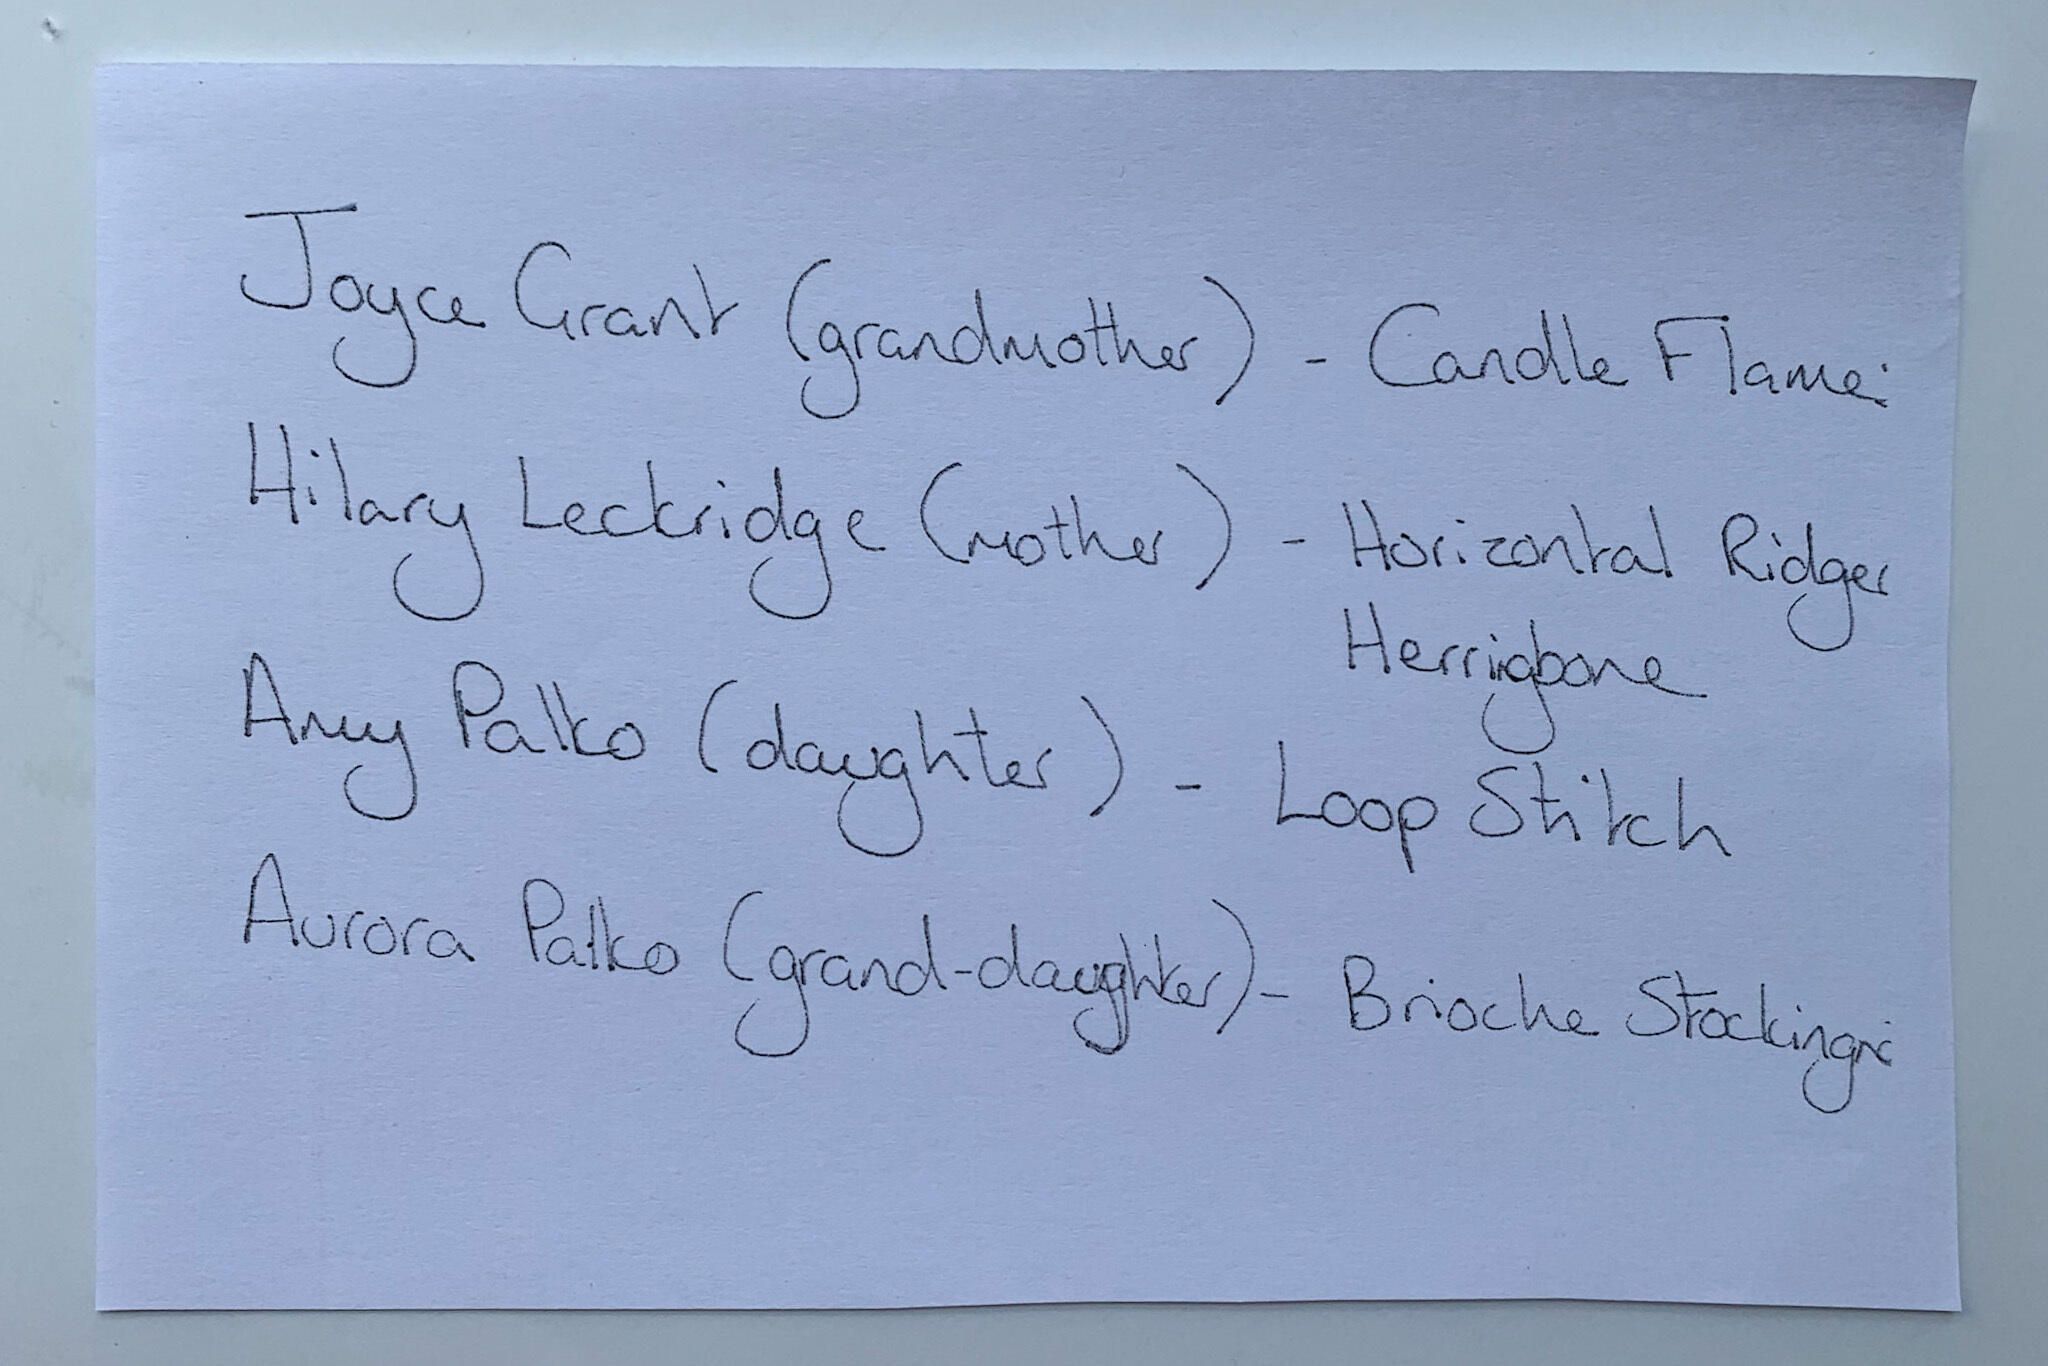 Joyce Grant (grandmother) - Candle Flame
Hilary Leckridge (mother) - Horizontal Ridges
Herringbone
Amy Palko (daughter) - Loop Stitch
Aurora Palko (grand-daughter) - Brioche Stocking